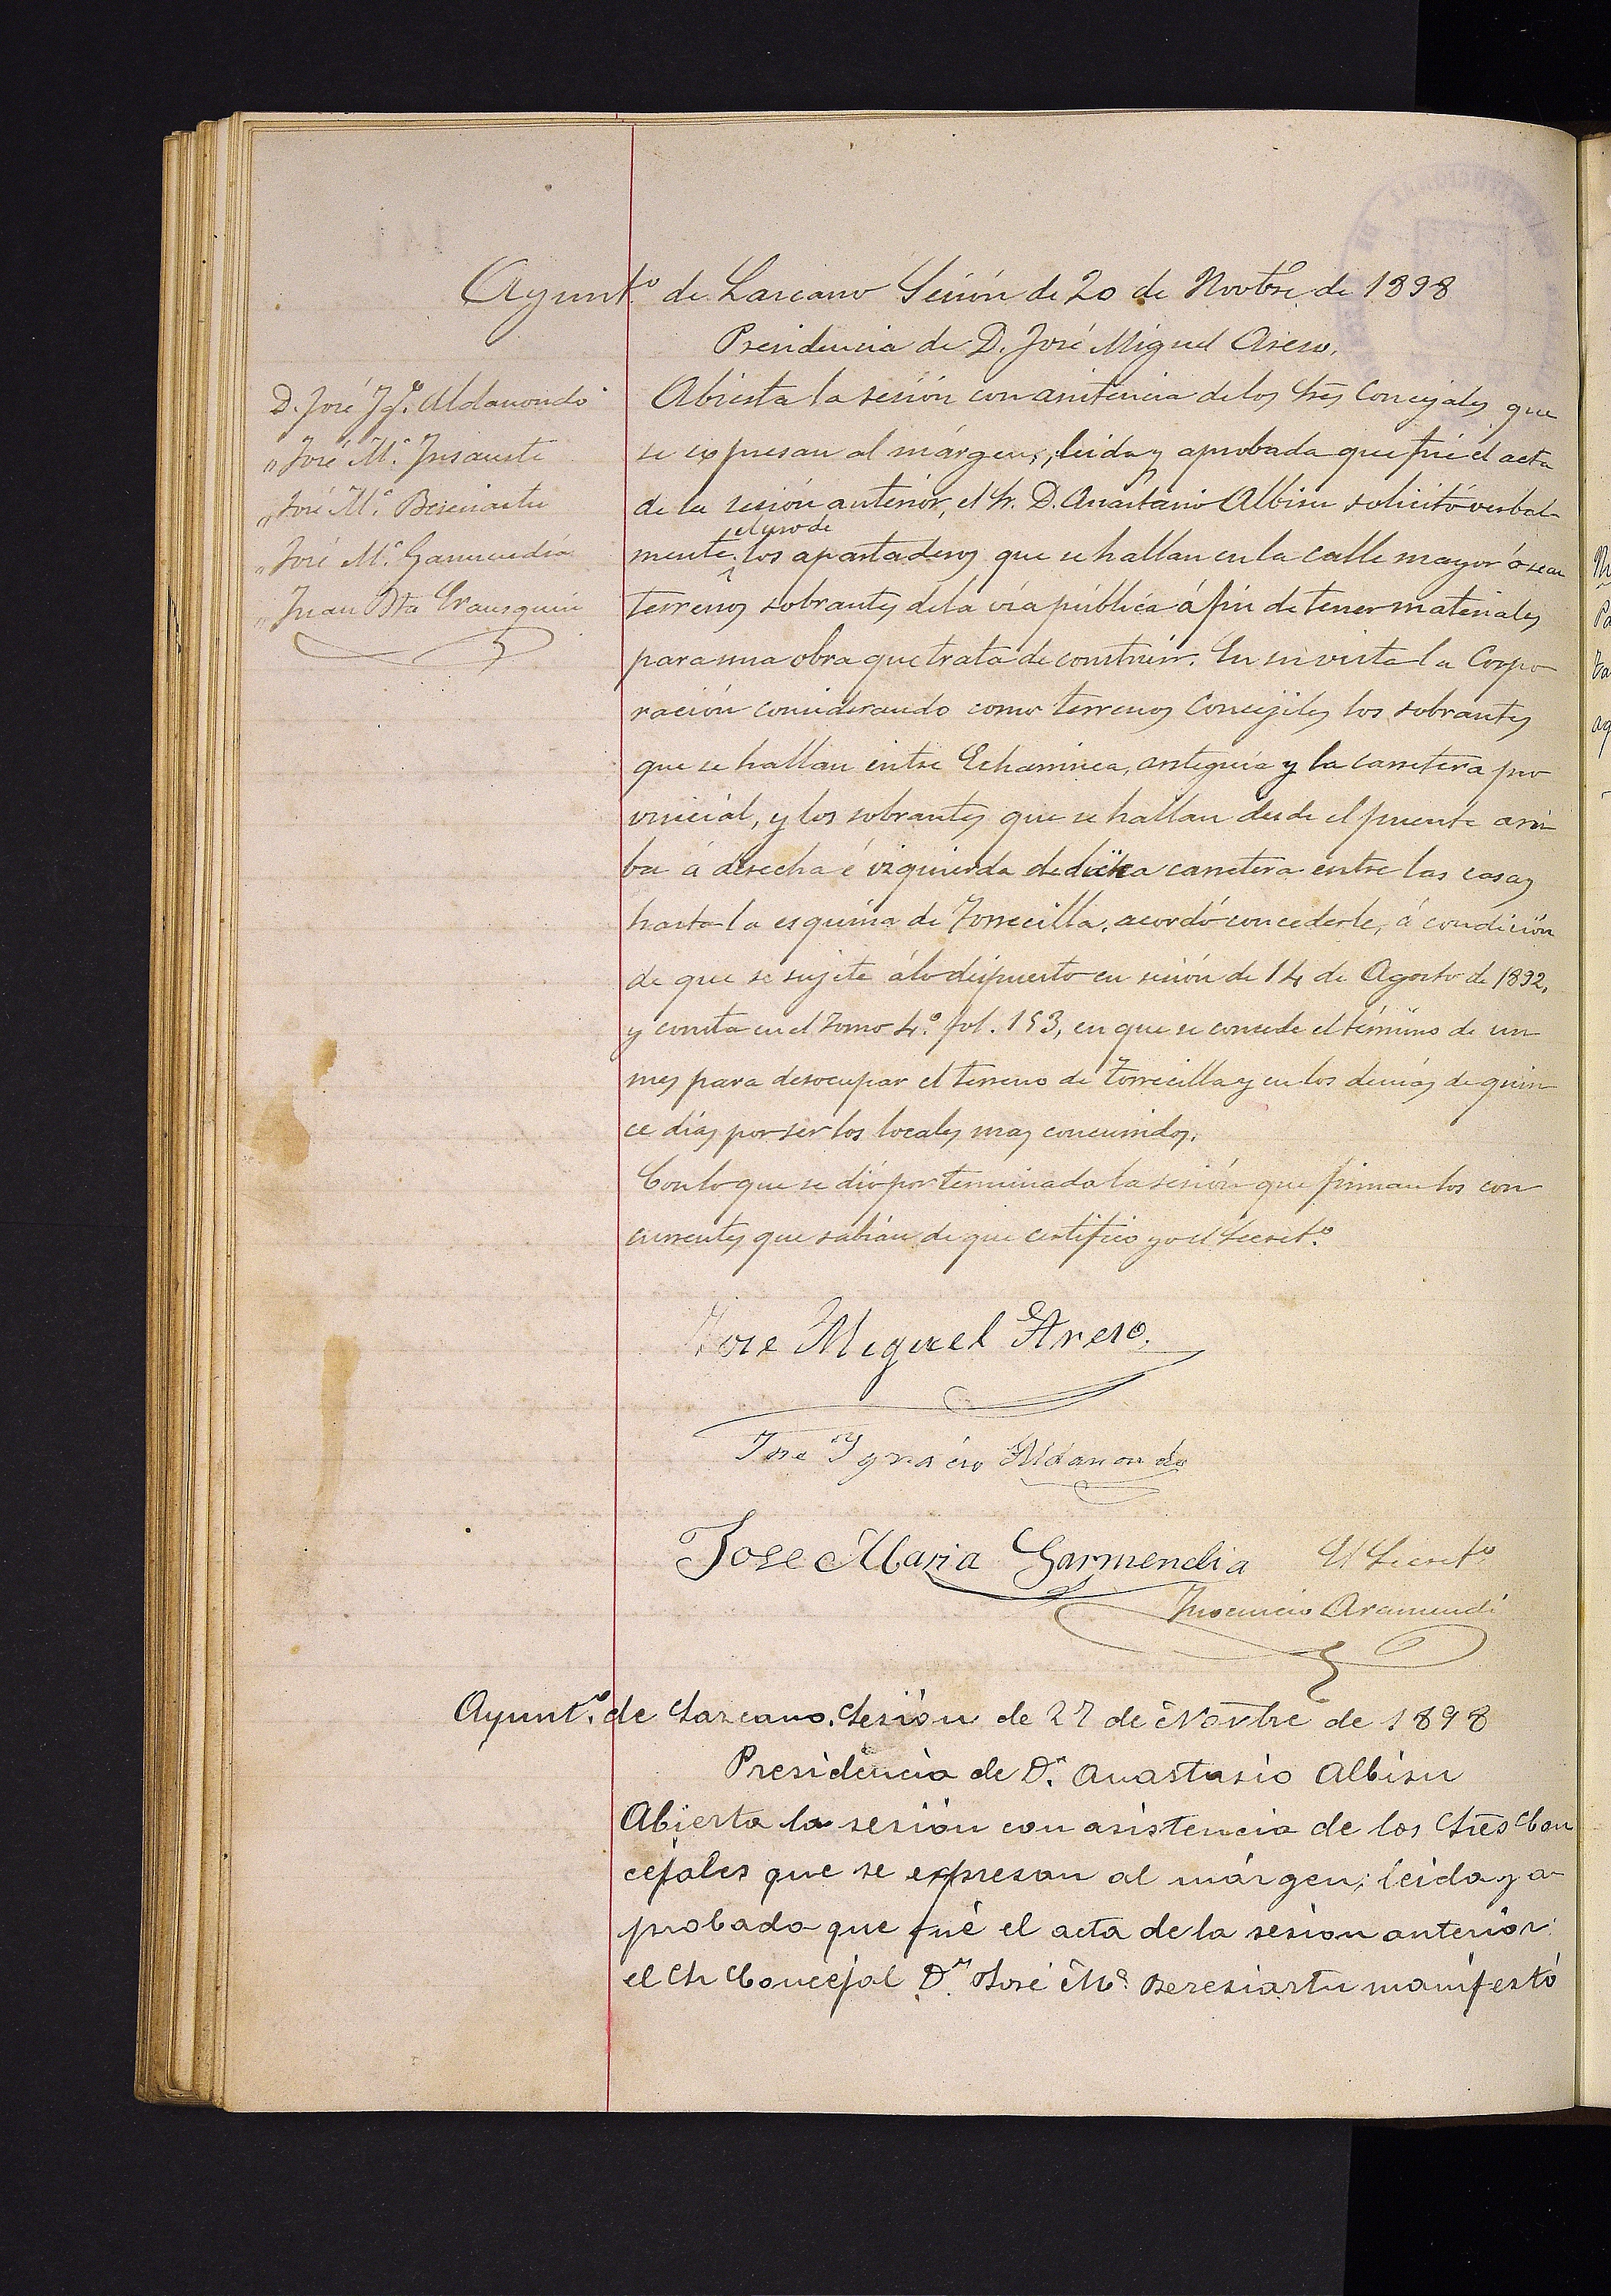 Ayunt.º de Lazcano Sesión de 20 de Novbre de 1898
Presidencia de D. José Miguel Areso.
D. José Ygº. Aldanondo
„ José M.ª Insausti
„ José M.ª Bereciartu
„ José M.ª Garmendia
„ Juan Bta Erausquin
Abierta la sesión con asistencia de los Sres Concejales que
se expresan al márgen, leida y aprobada que fué el acta
de la sesión anterior, el Sr. D. Anastasio Albisu solicitó verbal-
mente el uso de los apartaderos que se hallan en la calle mayor ó sean
terrenos sobrantes de la via pública á fin de tener materiales
para una obra que trata de construir. En su vista la Corpo
ración considerando como terrenos Concejiles los sobrantes
que se hallan entre Echaminea, antiguia y la carretera pro
vincial, y los sobrantes que se hallan desde el puente arri
ba á derecha é izquierda de dicha carretera entre las casas
hasta la esquina de Torrecilla, acordó concederle, á condición
de que se sujete á lo dispuesto en sesión de 14 de Agosto de 1892,
y consta en el Tomo 4.º fol. 153, en que se concede el término de un
mes para desocupar el terreno de Torrecilla y en los demás de quin
ce dias por ser los locales mas concurridos.
Con lo que se dió por terminada la sesión que firman los con
currentes que sabian de que certifico yo el Secret.º
Jose Miguel Areso.
Jose Ygnacio Aldanondo
Jose Maria Garmendia El Secret.º
Inocencio Aramendi
Ayunt.º de Lazcano. Sesión de 27 de Novbre de 1898
Presidencia de D.n Anastasio Albisu
Abierta la sesión con asistencia de los Sres Con
cejales que se expresan al márgen; leida y a
probada que fué el acta de la sesion anterior:
el Sr Concejal D.n José M.ª Bereciartu manifestó